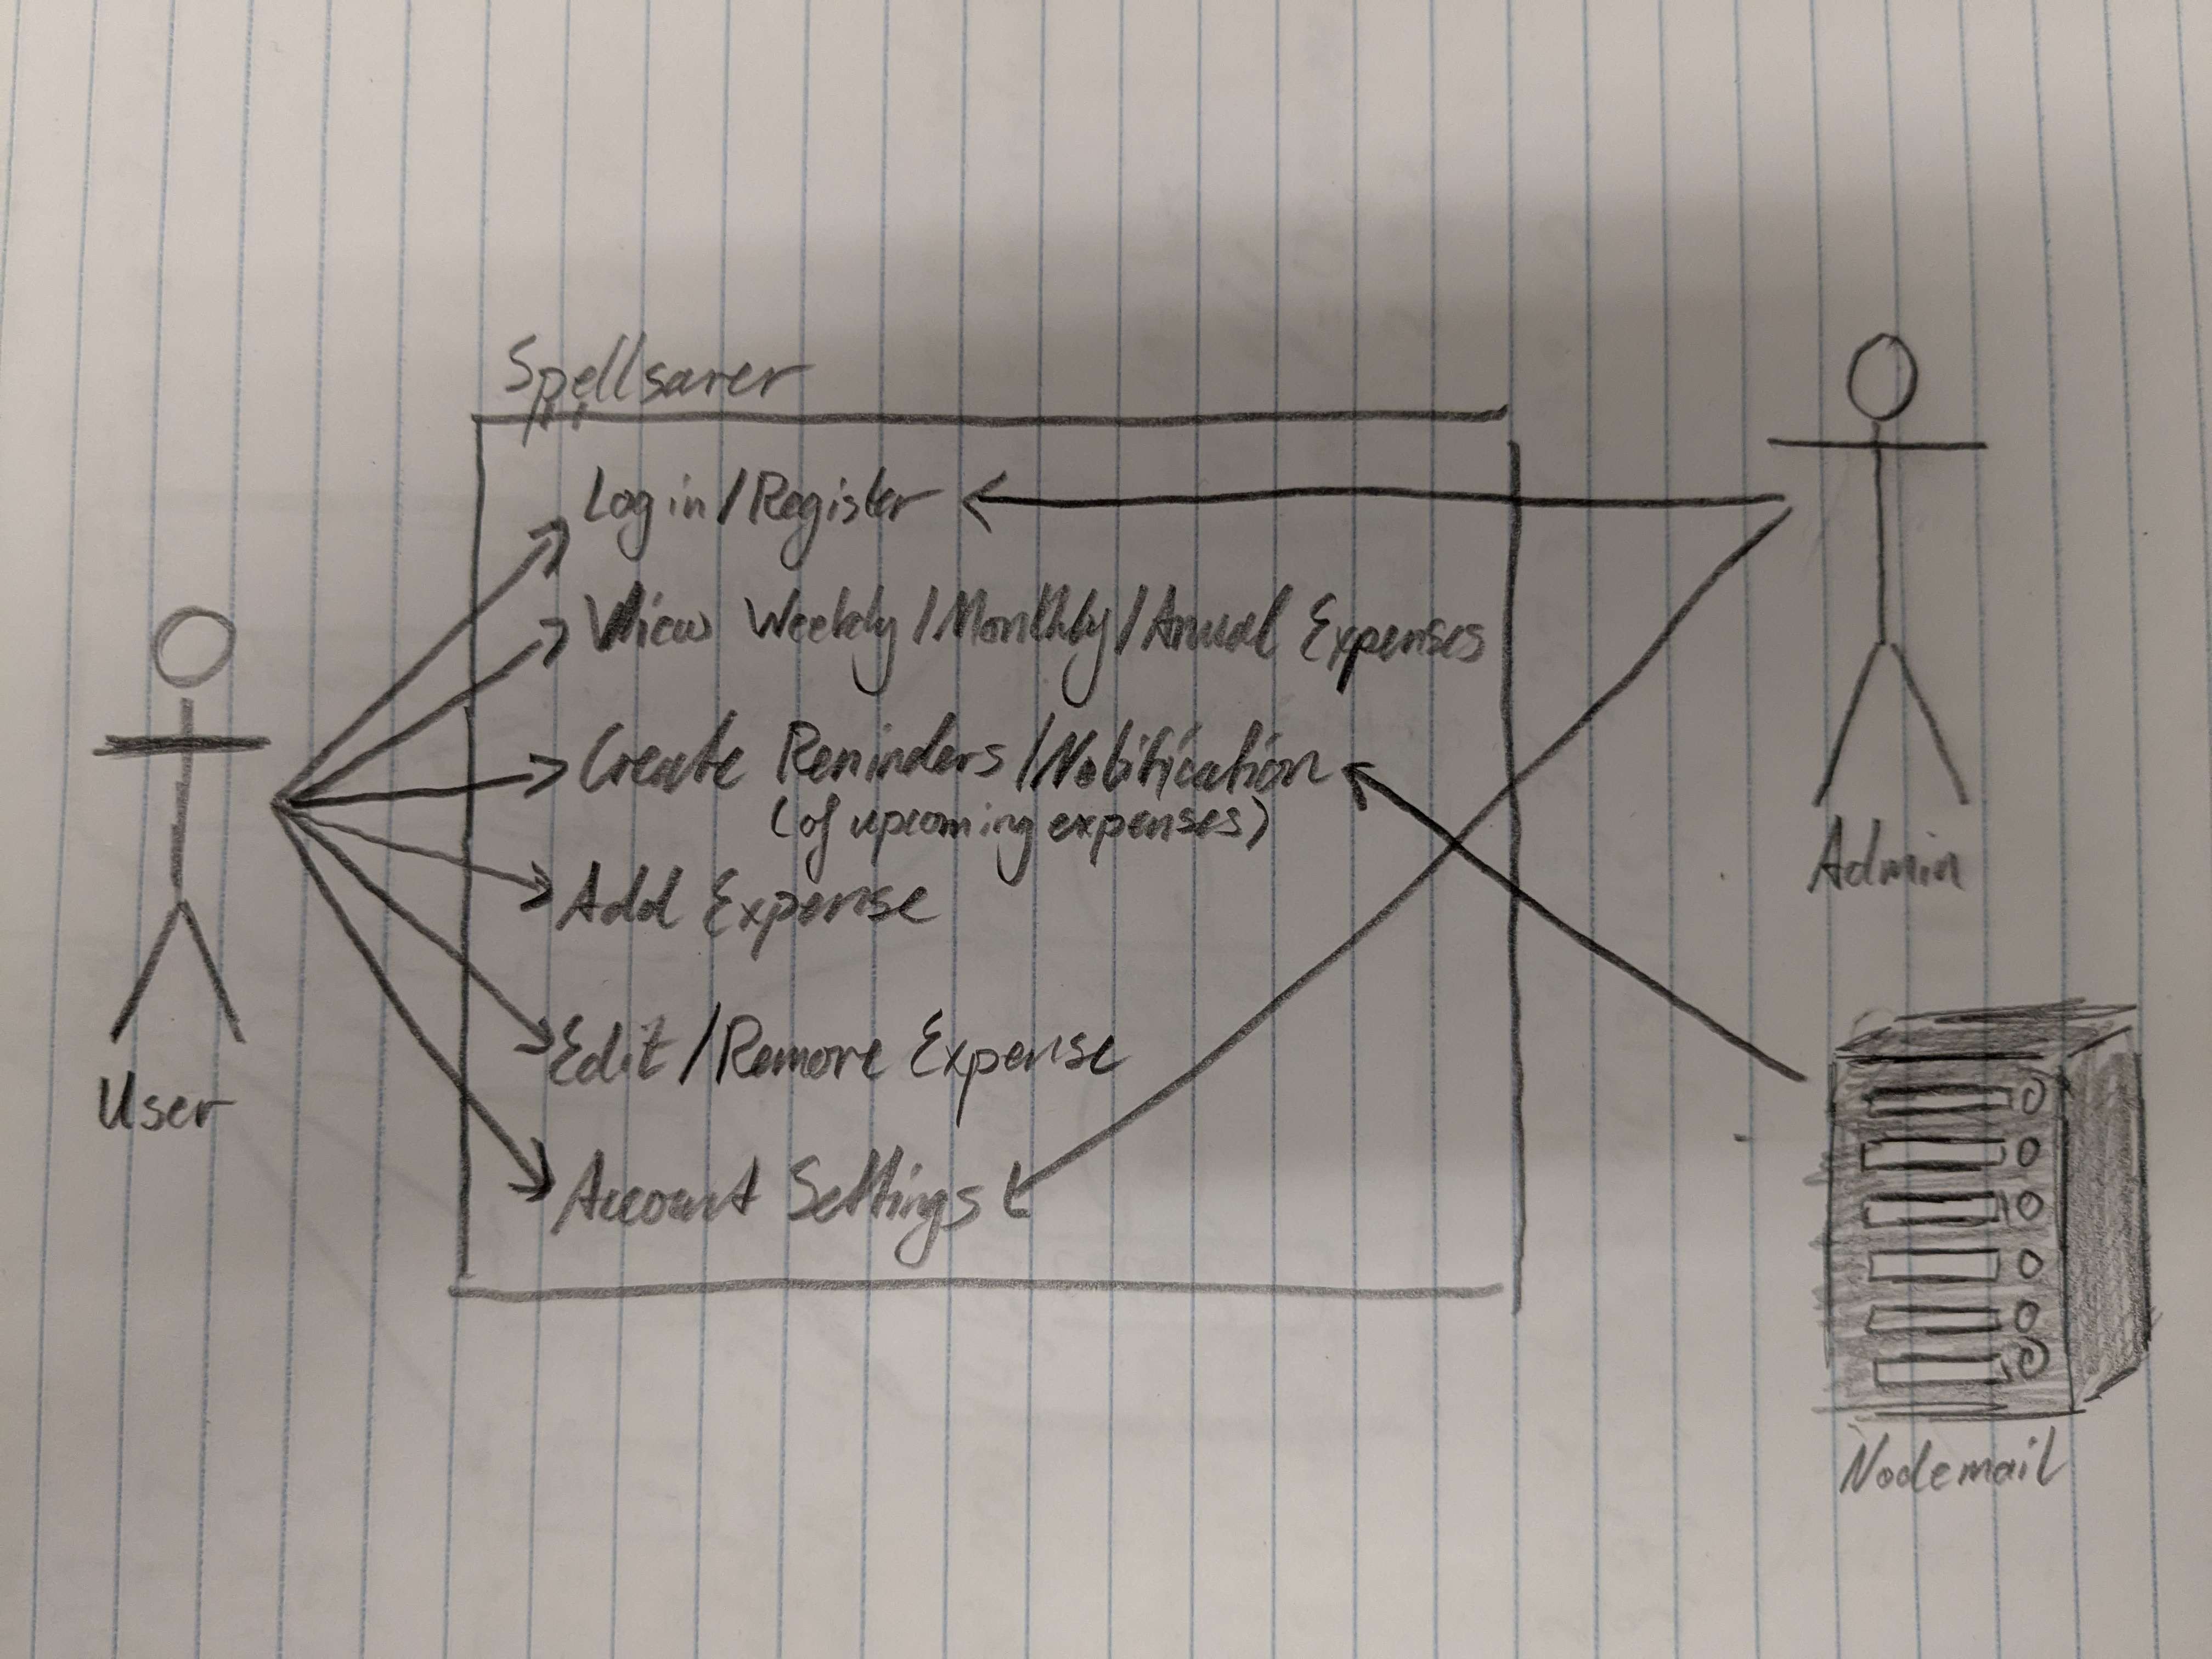 Spellsaver
Login/Register
View Weekly/Monthly/Anual Expenses
Create Reminders/Notification
(of upcoming expenses)
Add Expense
Edit/Remove Expense
Account Settings
User
Admin
Nodemail